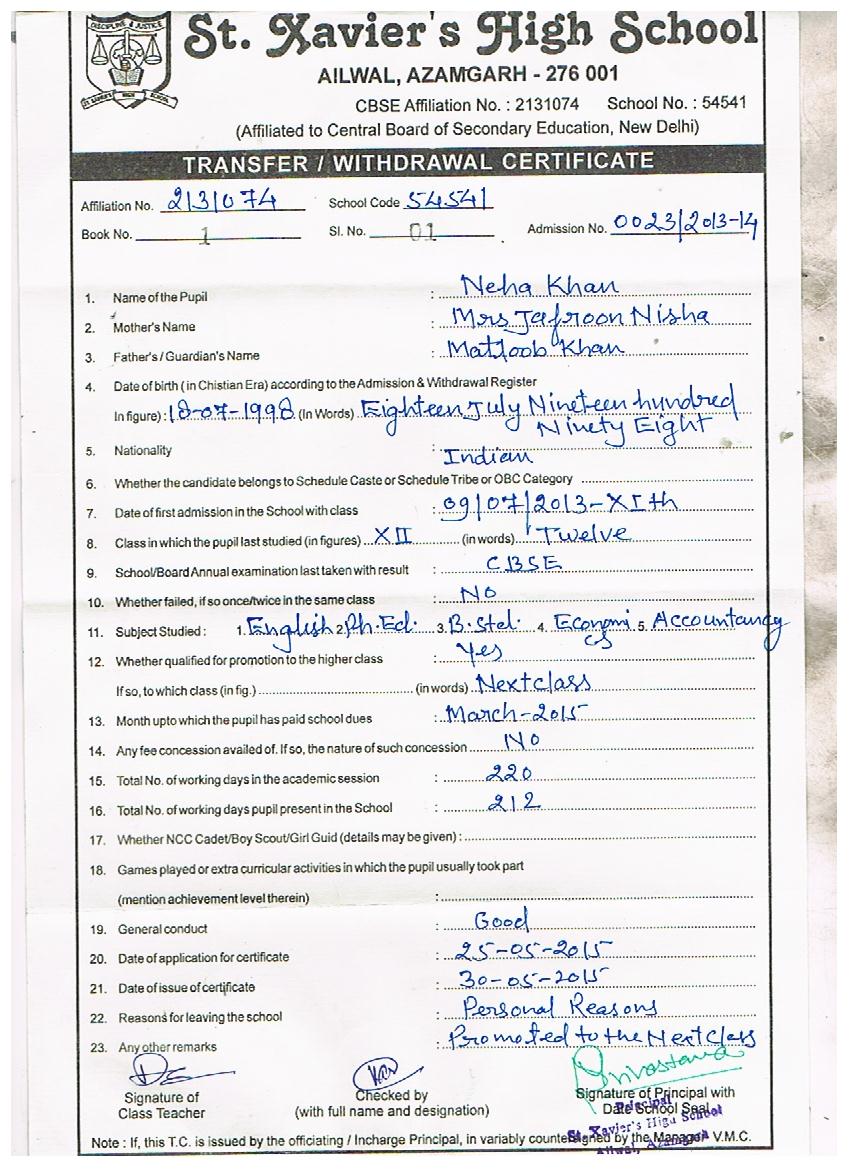 DISCIPLINE & JUSTICE
ST. XAVIER'S HIGH SCHOOL
St. Xavier's High School
AILWAL, AZAMGARH - 276 001
CBSE Affiliation No. : 2131074 School No. : 54541
(Affiliated to Central Board of Secondary Education, New Delhi)
TRANSFER / WITHDRAWAL CERTIFICATE
Affiliation No. 2131074 School Code 54541
Book No. 1 Sl. No. 01 Admission No. 0023/2013-14
1. Name of the Pupil : Neha Khan
2. Mother's Name : Mrs Jafroon Nisha
3. Father's / Guardian's Name : Matloob Khan
4. Date of birth ( in Chistian Era) according to the Admission & Withdrawal Register
In figure) : 18-07-1998 (In Words) Eighteen July Nineteen hundred
Ninety Eight
5. Nationality : Indian
6. Whether the candidate belongs to Schedule Caste or Schedule Tribe or OBC Category
7. Date of first admission in the School with class : 09/07/2013-XIth
8. Class in which the pupil last studied (in figures) XII (in words) Twelve
9. School/Board Annual examination last taken with result : CBSE
10. Whether failed, if so once/twice in the same class : No
11. Subject Studied : 1. English 2. Ph.Ed. 3. B.Std. 4. Economics 5. Accountancy
12. Whether qualified for promotion to the higher class : Yes
If so, to which class (in fig.) (in words) Next class
13. Month upto which the pupil has paid school dues : March-2015
14. Any fee concession availed of. If so, the nature of such concession No
15. Total No. of working days in the academic session : 220
16. Total No. of working days pupil present in the School : 212
17. Whether NCC Cadet/Boy Scout/Girl Guid (details may be given) :
18. Games played or extra curricular activities in which the pupil usually took part
(mention achievement level therein) :
19. General conduct : Good
20. Date of application for certificate : 25-05-2015
21. Date of issue of certificate : 30-05-2015
22. Reasons for leaving the school : Personal Reasons
23. Any other remarks : Promoted to the Next Class
Srivastava
Signature of Class Teacher
Checked by
(with full name and designation)
Signature of Principal with
Date School Seal
Principal
St. Xavier's High School
Ailwal, Azamgarh
Note : If, this T.C. is issued by the officiating / Incharge Principal, in variably countersigned by the Manager V.M.C.